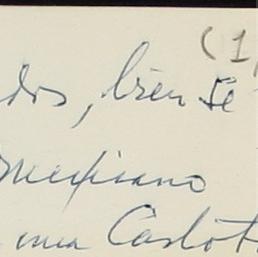 (1
dos, bien se
mexicano
una Carlot